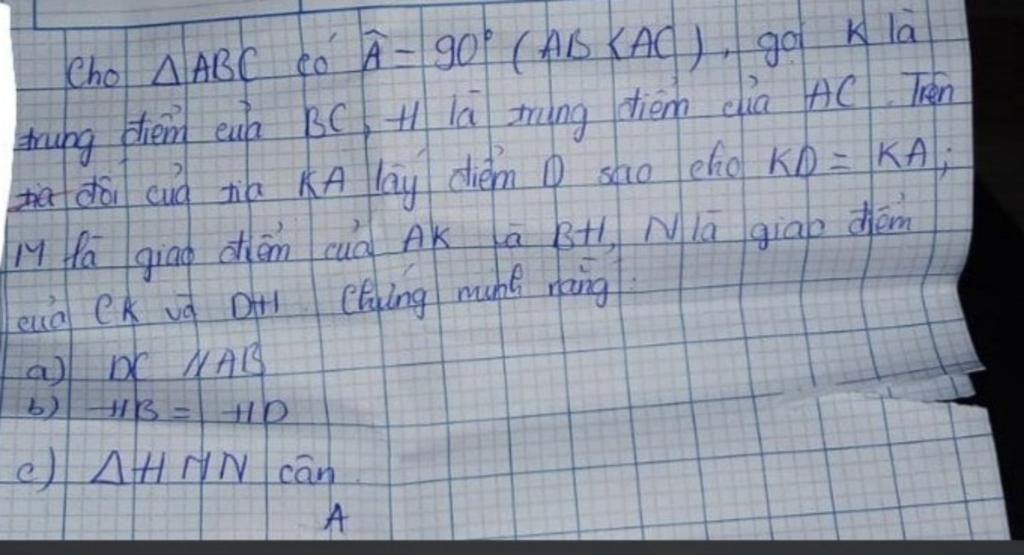 Cho ΔABC có Â = 90° (AB < AC), gọi K là
trung điểm của BC, H là trung điểm của AC. Trên
tia đối của tia KA lấy điểm D sao cho KD = KA;
M là giao điểm của AK và BH, N là giao điểm
của CK và DH. Chứng minh rằng:
a) DC // AB
b) HB = HD
c) ΔHMN cân.
A